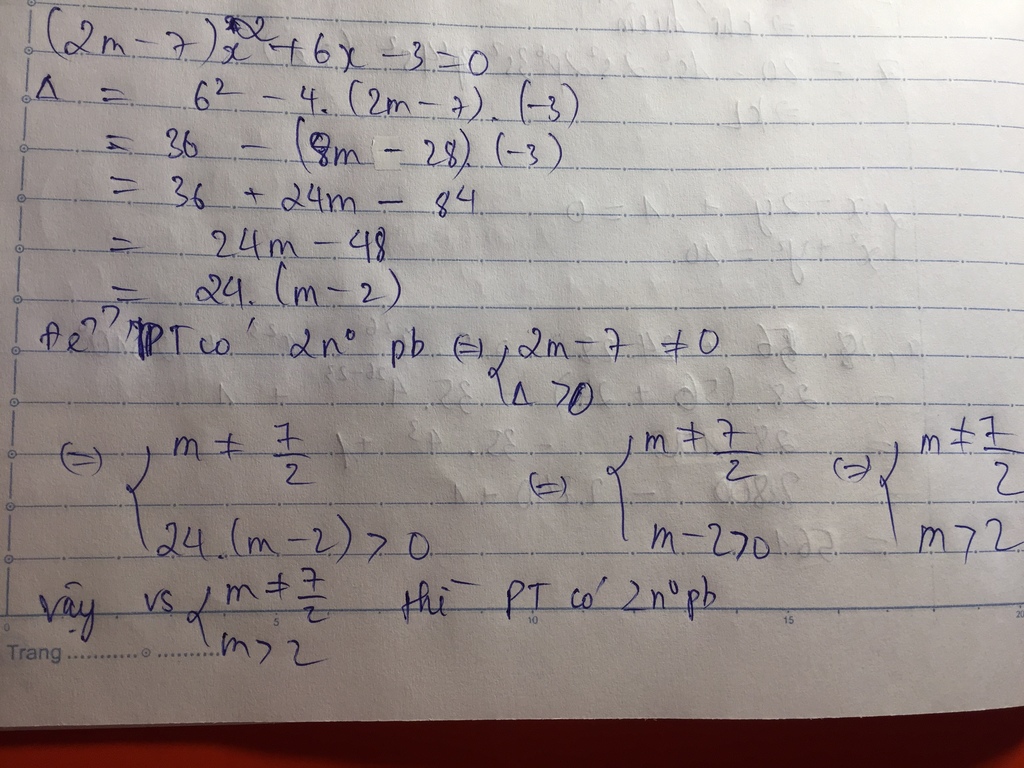 (2m - 7)x² + 6x - 3 = 0
Δ = 6² - 4. (2m - 7). (-3)
= 36 - (8m - 28) (-3)
= 36 + 24m - 84
= 24m - 48
= 24. (m - 2)
Để PT có 2n⁰ pb ⇔ { 2m - 7 ≠ 0
Δ > 0
⇔ { m ≠ 7/2 ⇔ { m ≠ 7/2 ⇔ { m ≠ 7/2
24. (m - 2) > 0 m - 2 > 0 m > 2
Vậy vs { m ≠ 7/2 thì PT có 2n⁰ pb
m > 2
0 5 10 15 20
Trang